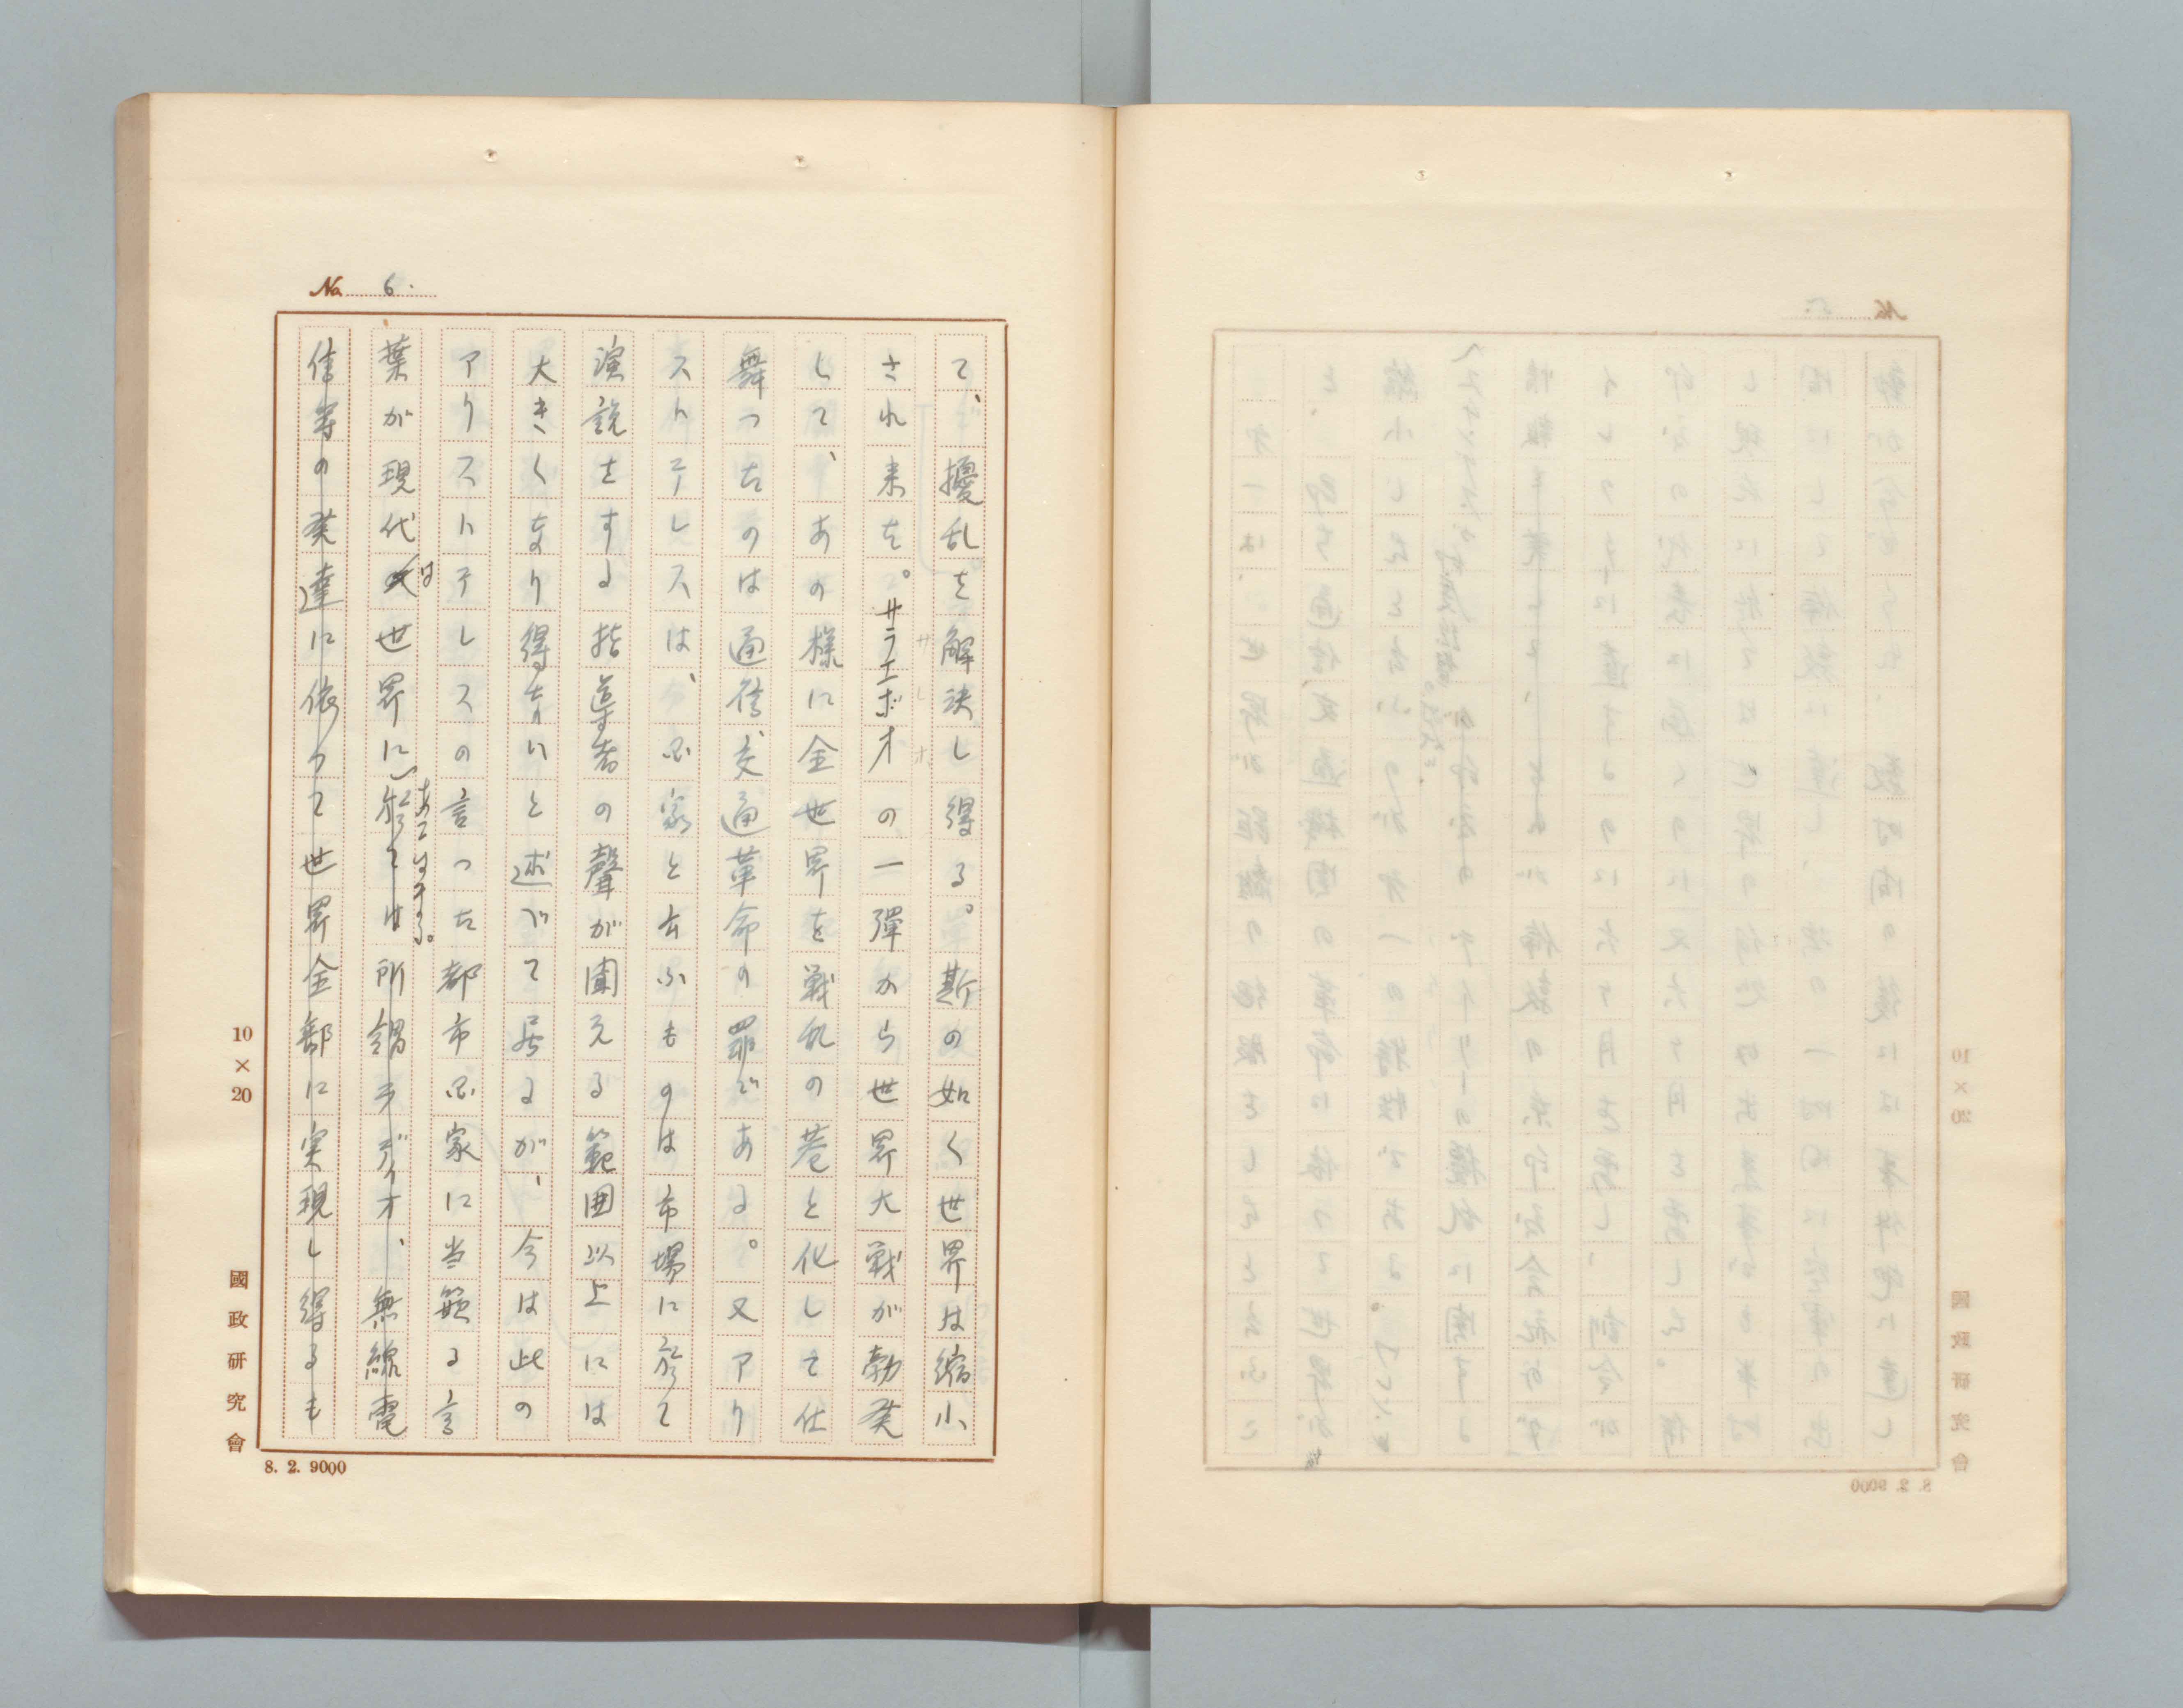 No. 6.
て、擾乱を解決し得る。斯の如く世界は縮小
され来た。サラエボオの一彈から世界大戦が勃発
して、あの様に全世界を戦乱の巷と化して仕
舞つたのは通信交通革命の罪である。又アリ
ストテレスは、国家と云ふものは市場に於て
演説をする指導者の聲が聞える範囲以上には
大きくなり得ないと述べて居るが、今は此の
アリストテレスの言つた都市国家に当篏る言
葉が現代は世界にあてはまる。於ては所謂ラヂイオ、無線電
信等の発達に依つて世界全部に実現し得るも
10×20
國政研究會
8. 2. 9000